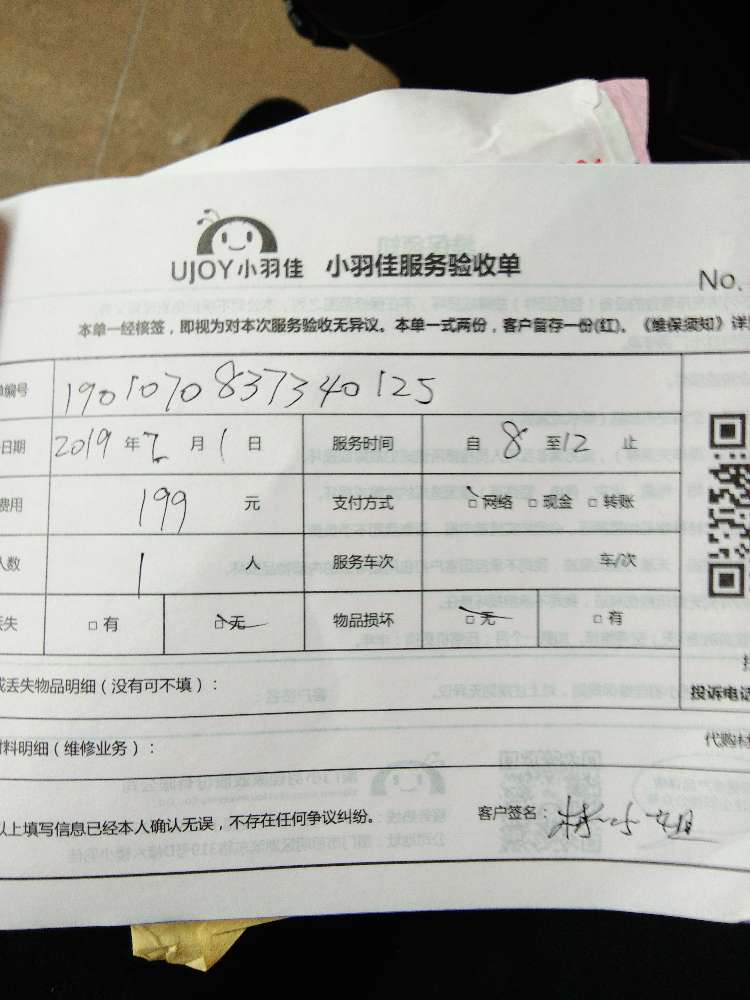 UJOY小羽佳 小羽佳服务验收单
No.
本单一经核签，即视为对本次服务验收无异议。本单一式两份，客户留存一份(红)。《维保须知》详
编号 1901070837340125
日期 2019年7月1日 服务时间 自8至12止
费用 199元 支付方式 网络 现金 转账
人数 1人 服务车次 车/次
丢失 有 无 物品损坏 无 有
或丢失物品明细（没有可不填）：
投诉电话
材料明细（维修业务）： 代购材
以上填写信息已经本人确认无误，不存在任何争议纠纷。 客户签名：林小姐